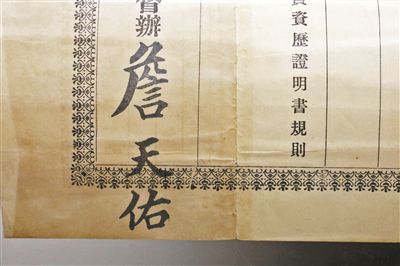 資歷證明書規則
督辦詹天佑